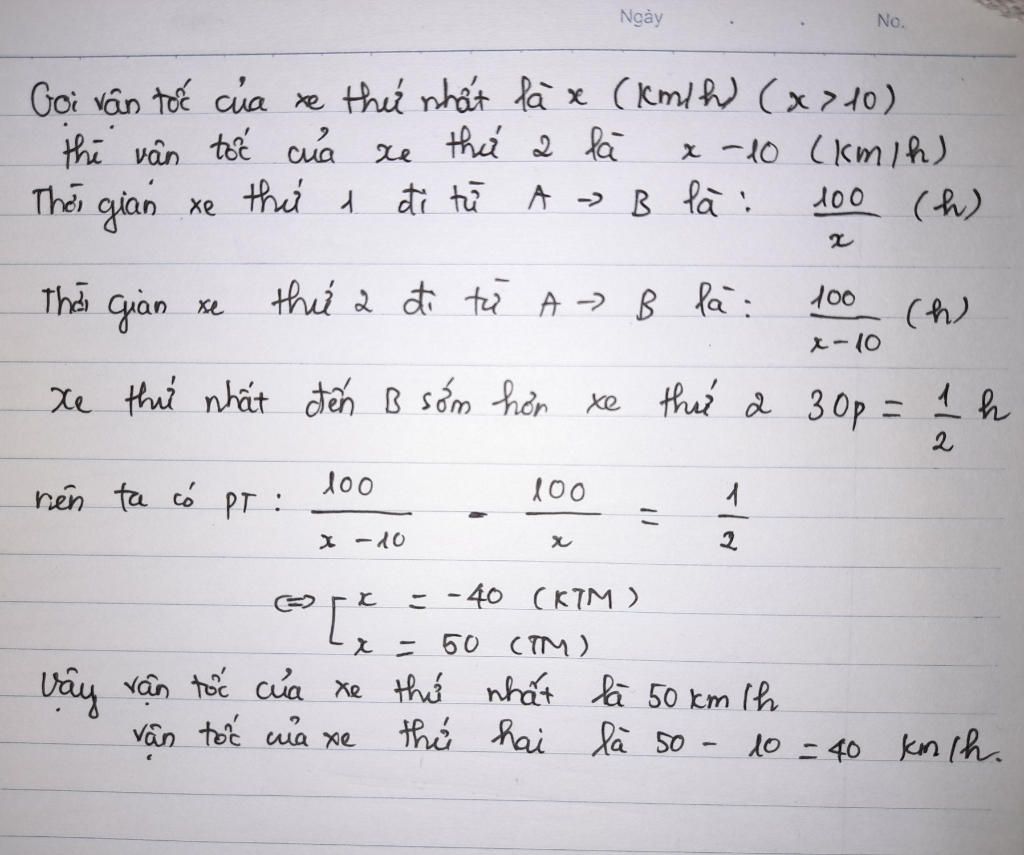 Ngày . . No.
Gọi vận tốc của xe thứ nhất là x (km/h) (x > 10)
thì vận tốc của xe thứ 2 là x - 10 (km/h)
Thời gian xe thứ 1 đi từ A -> B là: 100/x (h)
Thời gian xe thứ 2 đi từ A -> B là: 100/(x-10) (h)
xe thứ nhất đến B sớm hơn xe thứ 2 30p = 1/2 h
nên ta có PT: 100/(x-10) - 100/x = 1/2
<=> [ x = -40 (KTM)
x = 50 (TM)
Vậy vận tốc của xe thứ nhất là 50 km/h
vận tốc của xe thứ hai là 50 - 10 = 40 km/h.